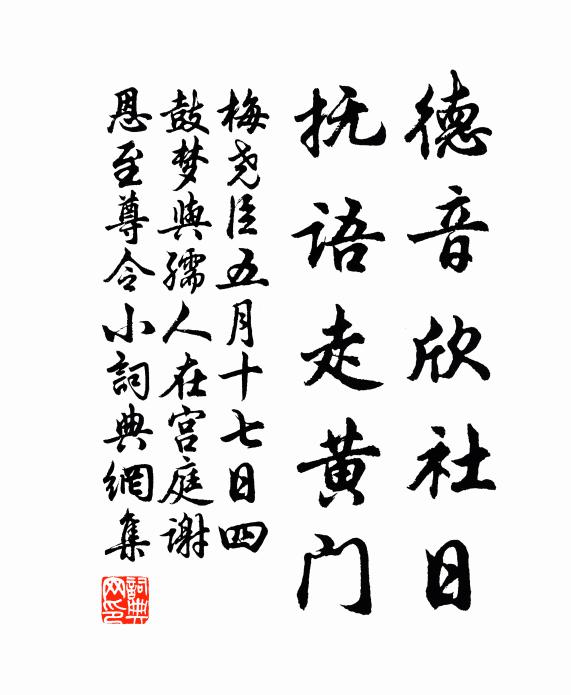 德音欣社日
抚语走黄门
梅尧臣五月十七日四
鼓梦與孺人在宫庭谢
恩至尊令小詞典網集
詞典网印